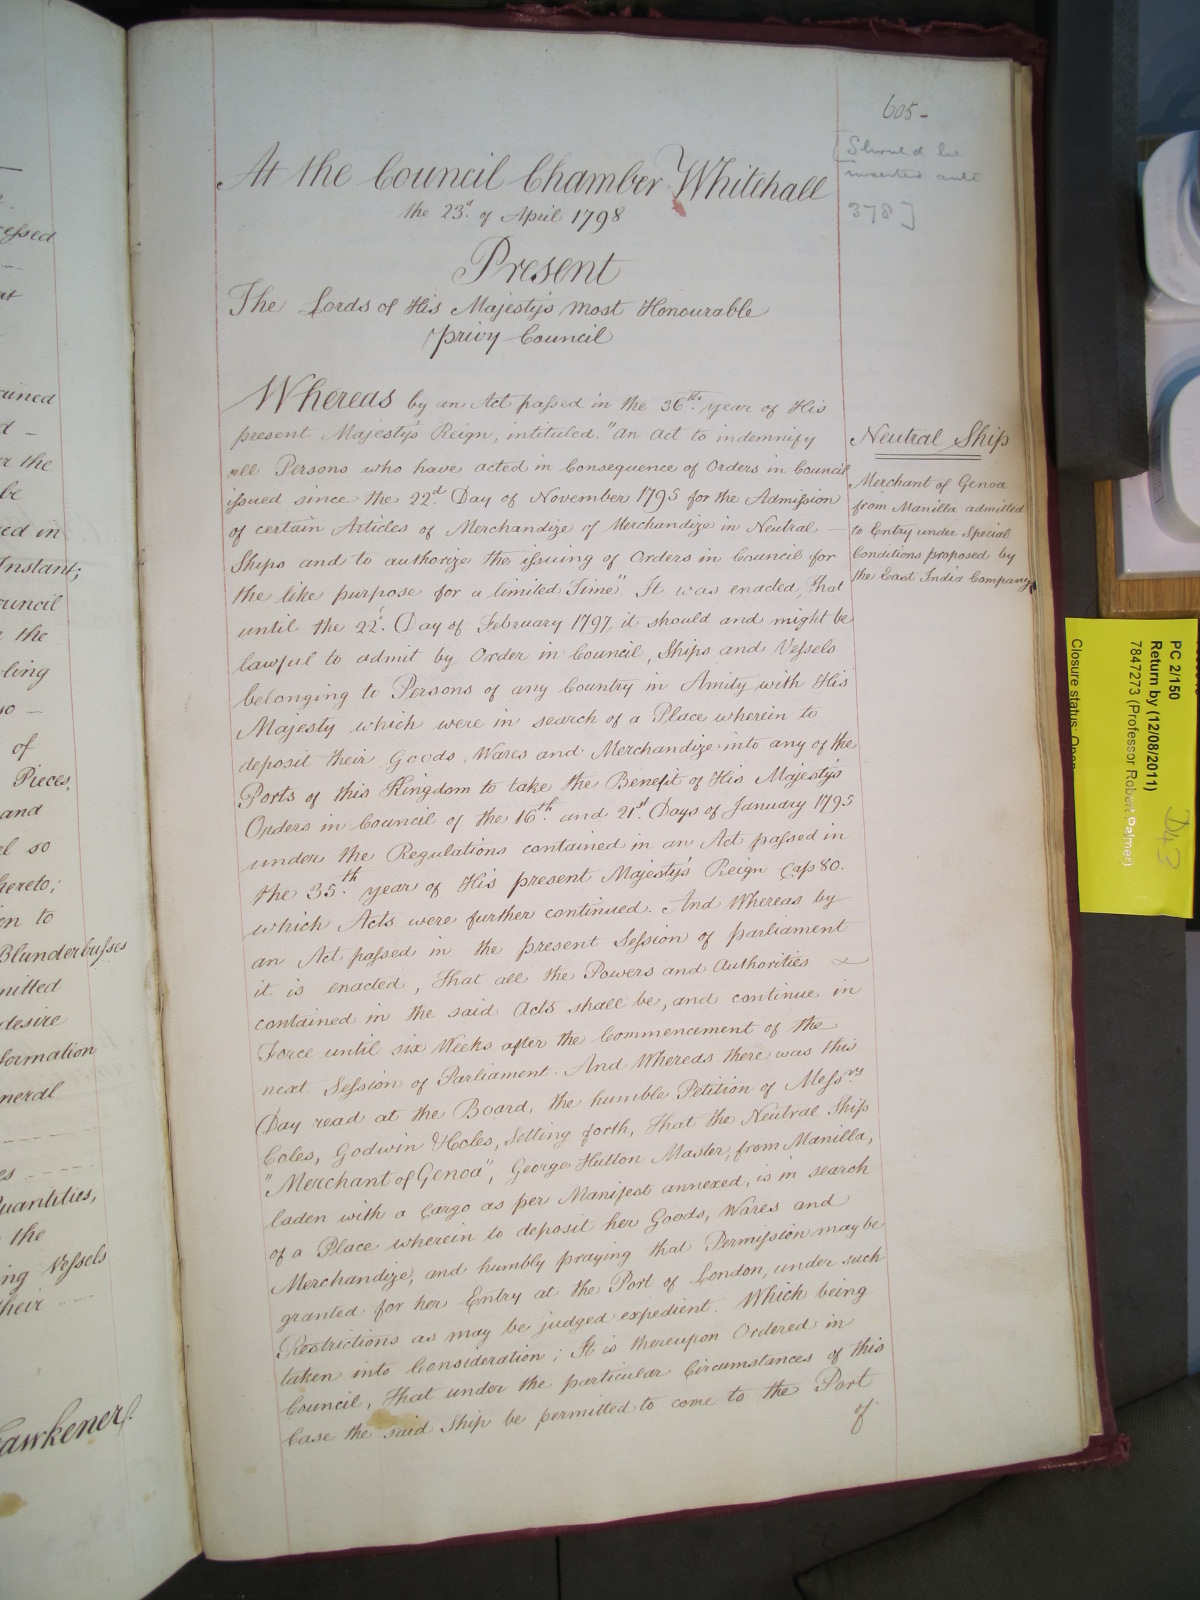 605-
[Should be
inserted ante
378]
At the Council Chamber Whitehall
the 23d. of April 1798
Present
The Lords of His Majesty's most Honourable
Privy Council
Whereas by an Act passed in the 36th. year of His
present Majesty's Reign, intituled. "An Act to indemnify
all Persons who have acted in Consequence of Orders in Council
issued since the 22d. Day of November 1795 for the Admission
of certain Articles of Merchandize of Merchandize in Neutral —
Ships and to authorize the issuing of Orders in Council for
the like purpose for a limited Time". It was enacted, That
until the 22d. Day of February 1797, it should and might be
lawful to admit by Order in Council, Ships and Vessels
belonging to Persons of any Country in Amity with His
Majesty which were in search of a Place wherein to
deposit their Goods, Wares and Merchandize into any of the
Ports of this Kingdom to take the Benefit of His Majesty's
Orders in Council of the 16th and 21st. Days of January 1795
under the Regulations contained in an Act passed in
the 35th. year of His present Majesty's Reign Cap 80.
which Acts were further continued. And Whereas by
an Act passed in the present Session of parliament
it is enacted, That all the Powers and Authorities
contained in the said Acts shall be, and continue in
Force until six Weeks after the Commencement of the
next Session of Parliament. And Whereas there was this
Day read at the Board, the humble Petition of Messrs
Coles, Godwin & Coles, Setting forth, That the Neutral Ship
"Merchant of Genoa", George Hutton Master, from Manilla,
laden with a Cargo as per Manifest annexed, is in search
of a Place wherein to deposit her Goods, Wares and
Merchandize, and humbly praying that Permission may be
granted for her Entry at the Port of London, under such
Restrictions as may be judged expedient. Which being
taken into Consideration; It is thereupon Ordered in
Council, That under the particular Circumstances of this
Case the said Ship be permitted to come to the Port
of
Neutral Ship
Merchant of Genoa
from Manilla admitted
to Entry under Special
Conditions proposed by
the East India Company
PC 2/150
Return by (12/08/2011)
7847273 (Professor Robert Palmer)
Closure status: Open
D43
essed
ained
d —
er the
be
ed in
Instant;
ouncil
the
ling
of
Pieces,
and
el so
hereto;
en to
Blunderbusses
mitted
desire
formation
neral
Quantities,
the
ing Vessels
their
Fawkener.